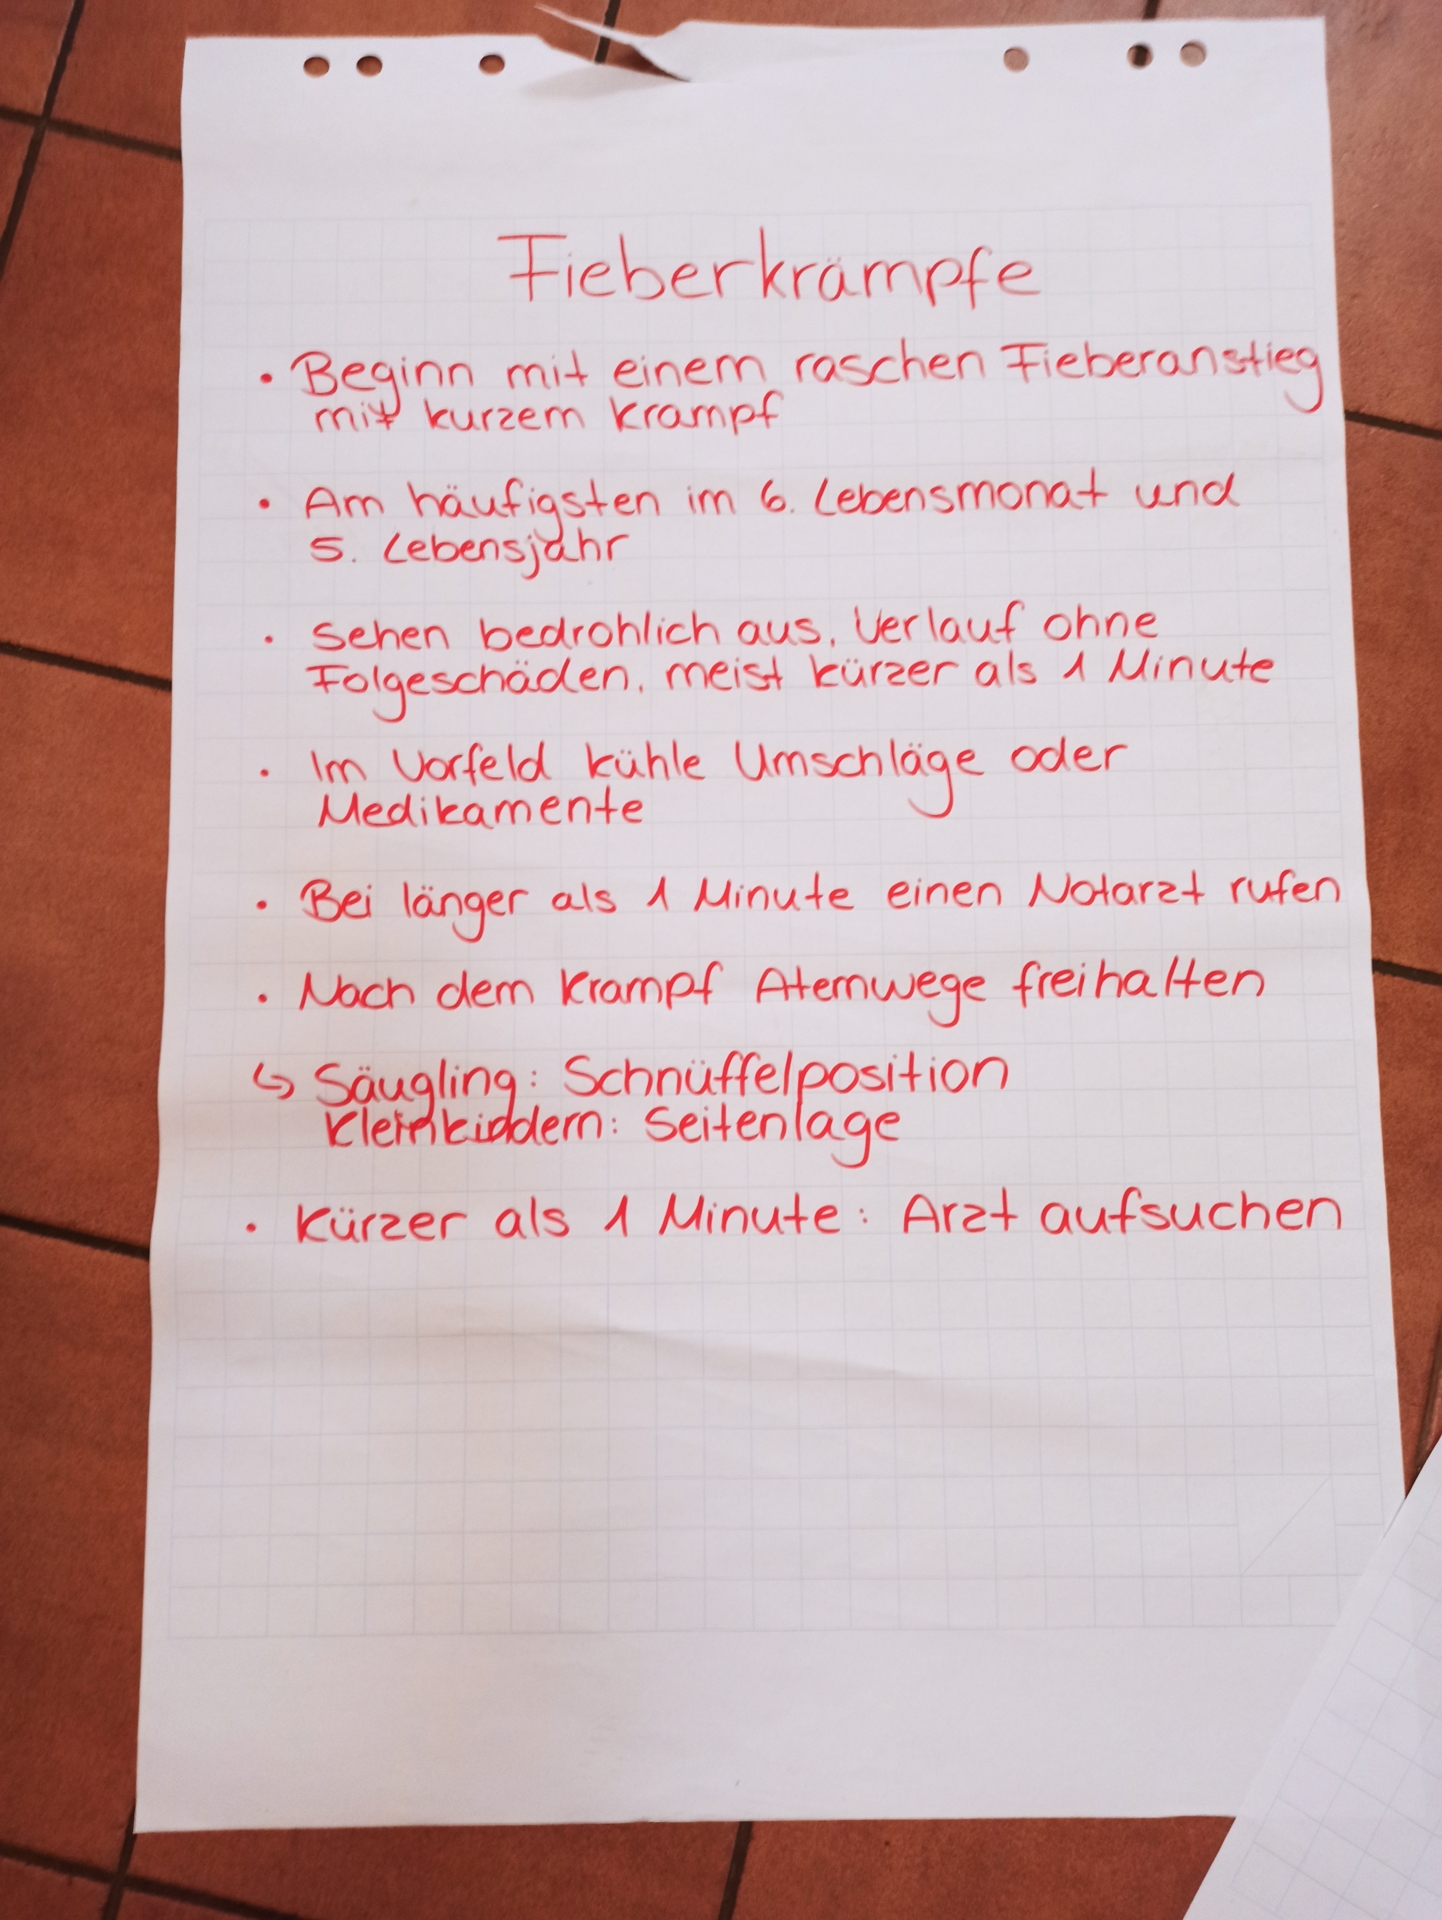 Fieberkrämpfe
• Beginn mit einem raschen Fieberanstieg
mit kurzem Krampf
• Am häufigsten im 6. Lebensmonat und
5. Lebensjahr
• Sehen bedrohlich aus, Verlauf ohne
Folgeschäden, meist kürzer als 1 Minute
• Im Vorfeld kühle Umschläge oder
Medikamente
• Bei länger als 1 Minute einen Notarzt rufen
• Nach dem Krampf Atemwege freihalten
↳ Säugling: Schnüffelposition
Kleinkiddern: Seitenlage
• Kürzer als 1 Minute: Arzt aufsuchen